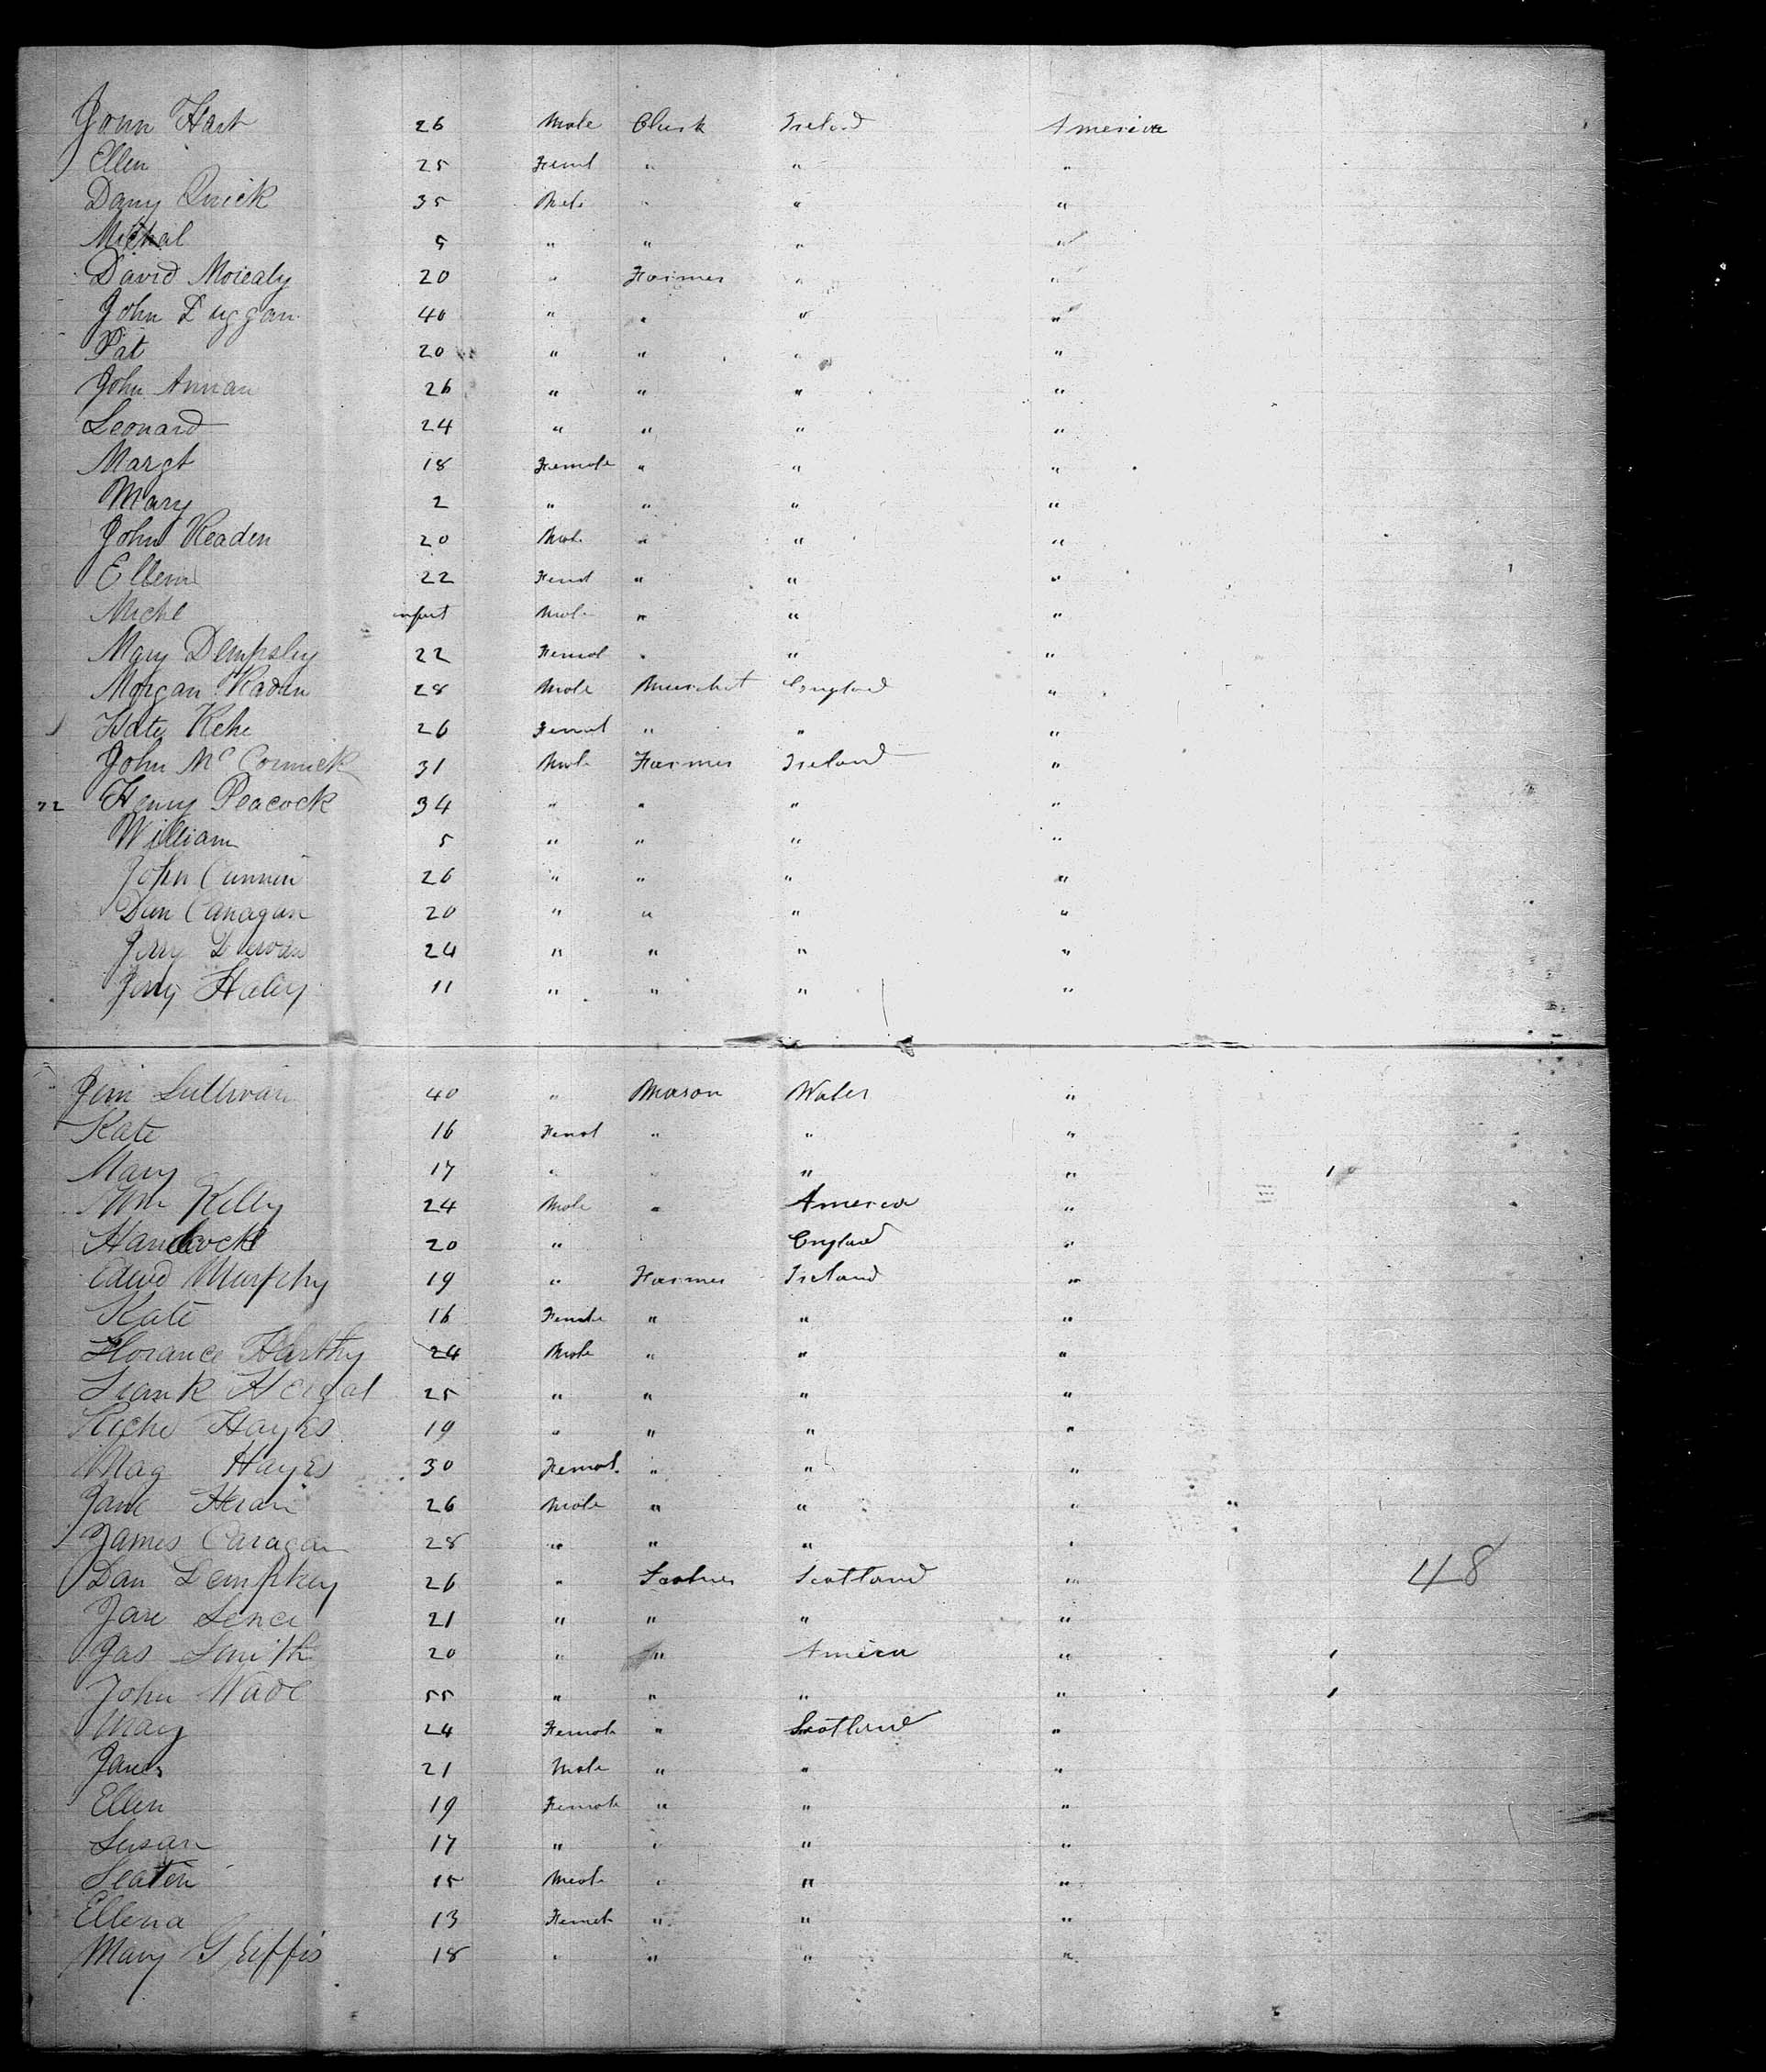 John Hart 26 Male Clerk Ireland America
Ellen 25 Femal " " "
Dany Quick 35 Male " " "
Michal 5 " " " "
David 20 " Farmer " "
John Duggan 40 " " " "
Pat 20 " " " "
John Annan 26 " " " "
Leonard 24 " " " "
Margt 18 Female " " "
Mary 2 " " " "
John Readen 20 Male " " "
Ellen 22 Femal " " "
Michl infant Male " " "
Mary Dempsey 22 Femal " " "
Morgan 28 Male England "
Kate 26 Femal " " "
John McCormick 31 Male Farmer Ireland "
72 Henry Peacock 34 " " " "
William 5 " " " "
John 26 " " " "
Canagan 20 " " " "
Jerry 24 " " " "
Jerry Haley 11 " " " "
Jim Sullivan 40 " Mason Wales "
Kate 16 Femal " " "
Mary 17 " " " " 1
Wm Kelly 24 Male " America "
20 " England "
Edwd Murphy 19 " Farmer Ireland "
Kate 16 Female " " "
Florance 24 Male " " "
Frank 25 " " " "
Richd Hayes 19 " " " "
Mag Hayes 30 Femal " " "
Jane 26 Male " " " "
James Caragan 28 " " " "
Dan Dempsey 26 " Scotland " 48
Jane 21 " " " "
Jas Smith 20 " " America " 1
John Wade 55 " " " " 1
Mary 24 Female " Scotland "
James 21 Male " " "
Ellen 19 Female " " "
Susan 17 " " " "
15 Male " " "
Ellena 13 Femal " " "
Mary Griffis 18 " " " "